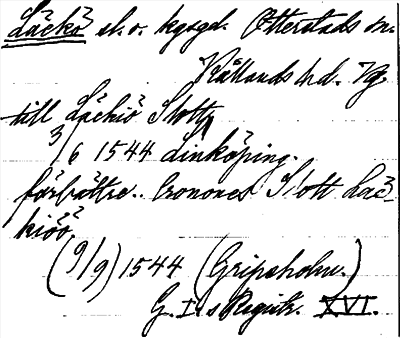 Läckö sl. o. kgsgd. Otterstads sn.
Kållands hd. Vg.
till Läckiö Slott
3/6 1544 Linköping.
förbättre.. Cronones Slott Läc-
kiöö
(9/9) 1544 (Gripsholm.)
G. I:s Registr. XVI.